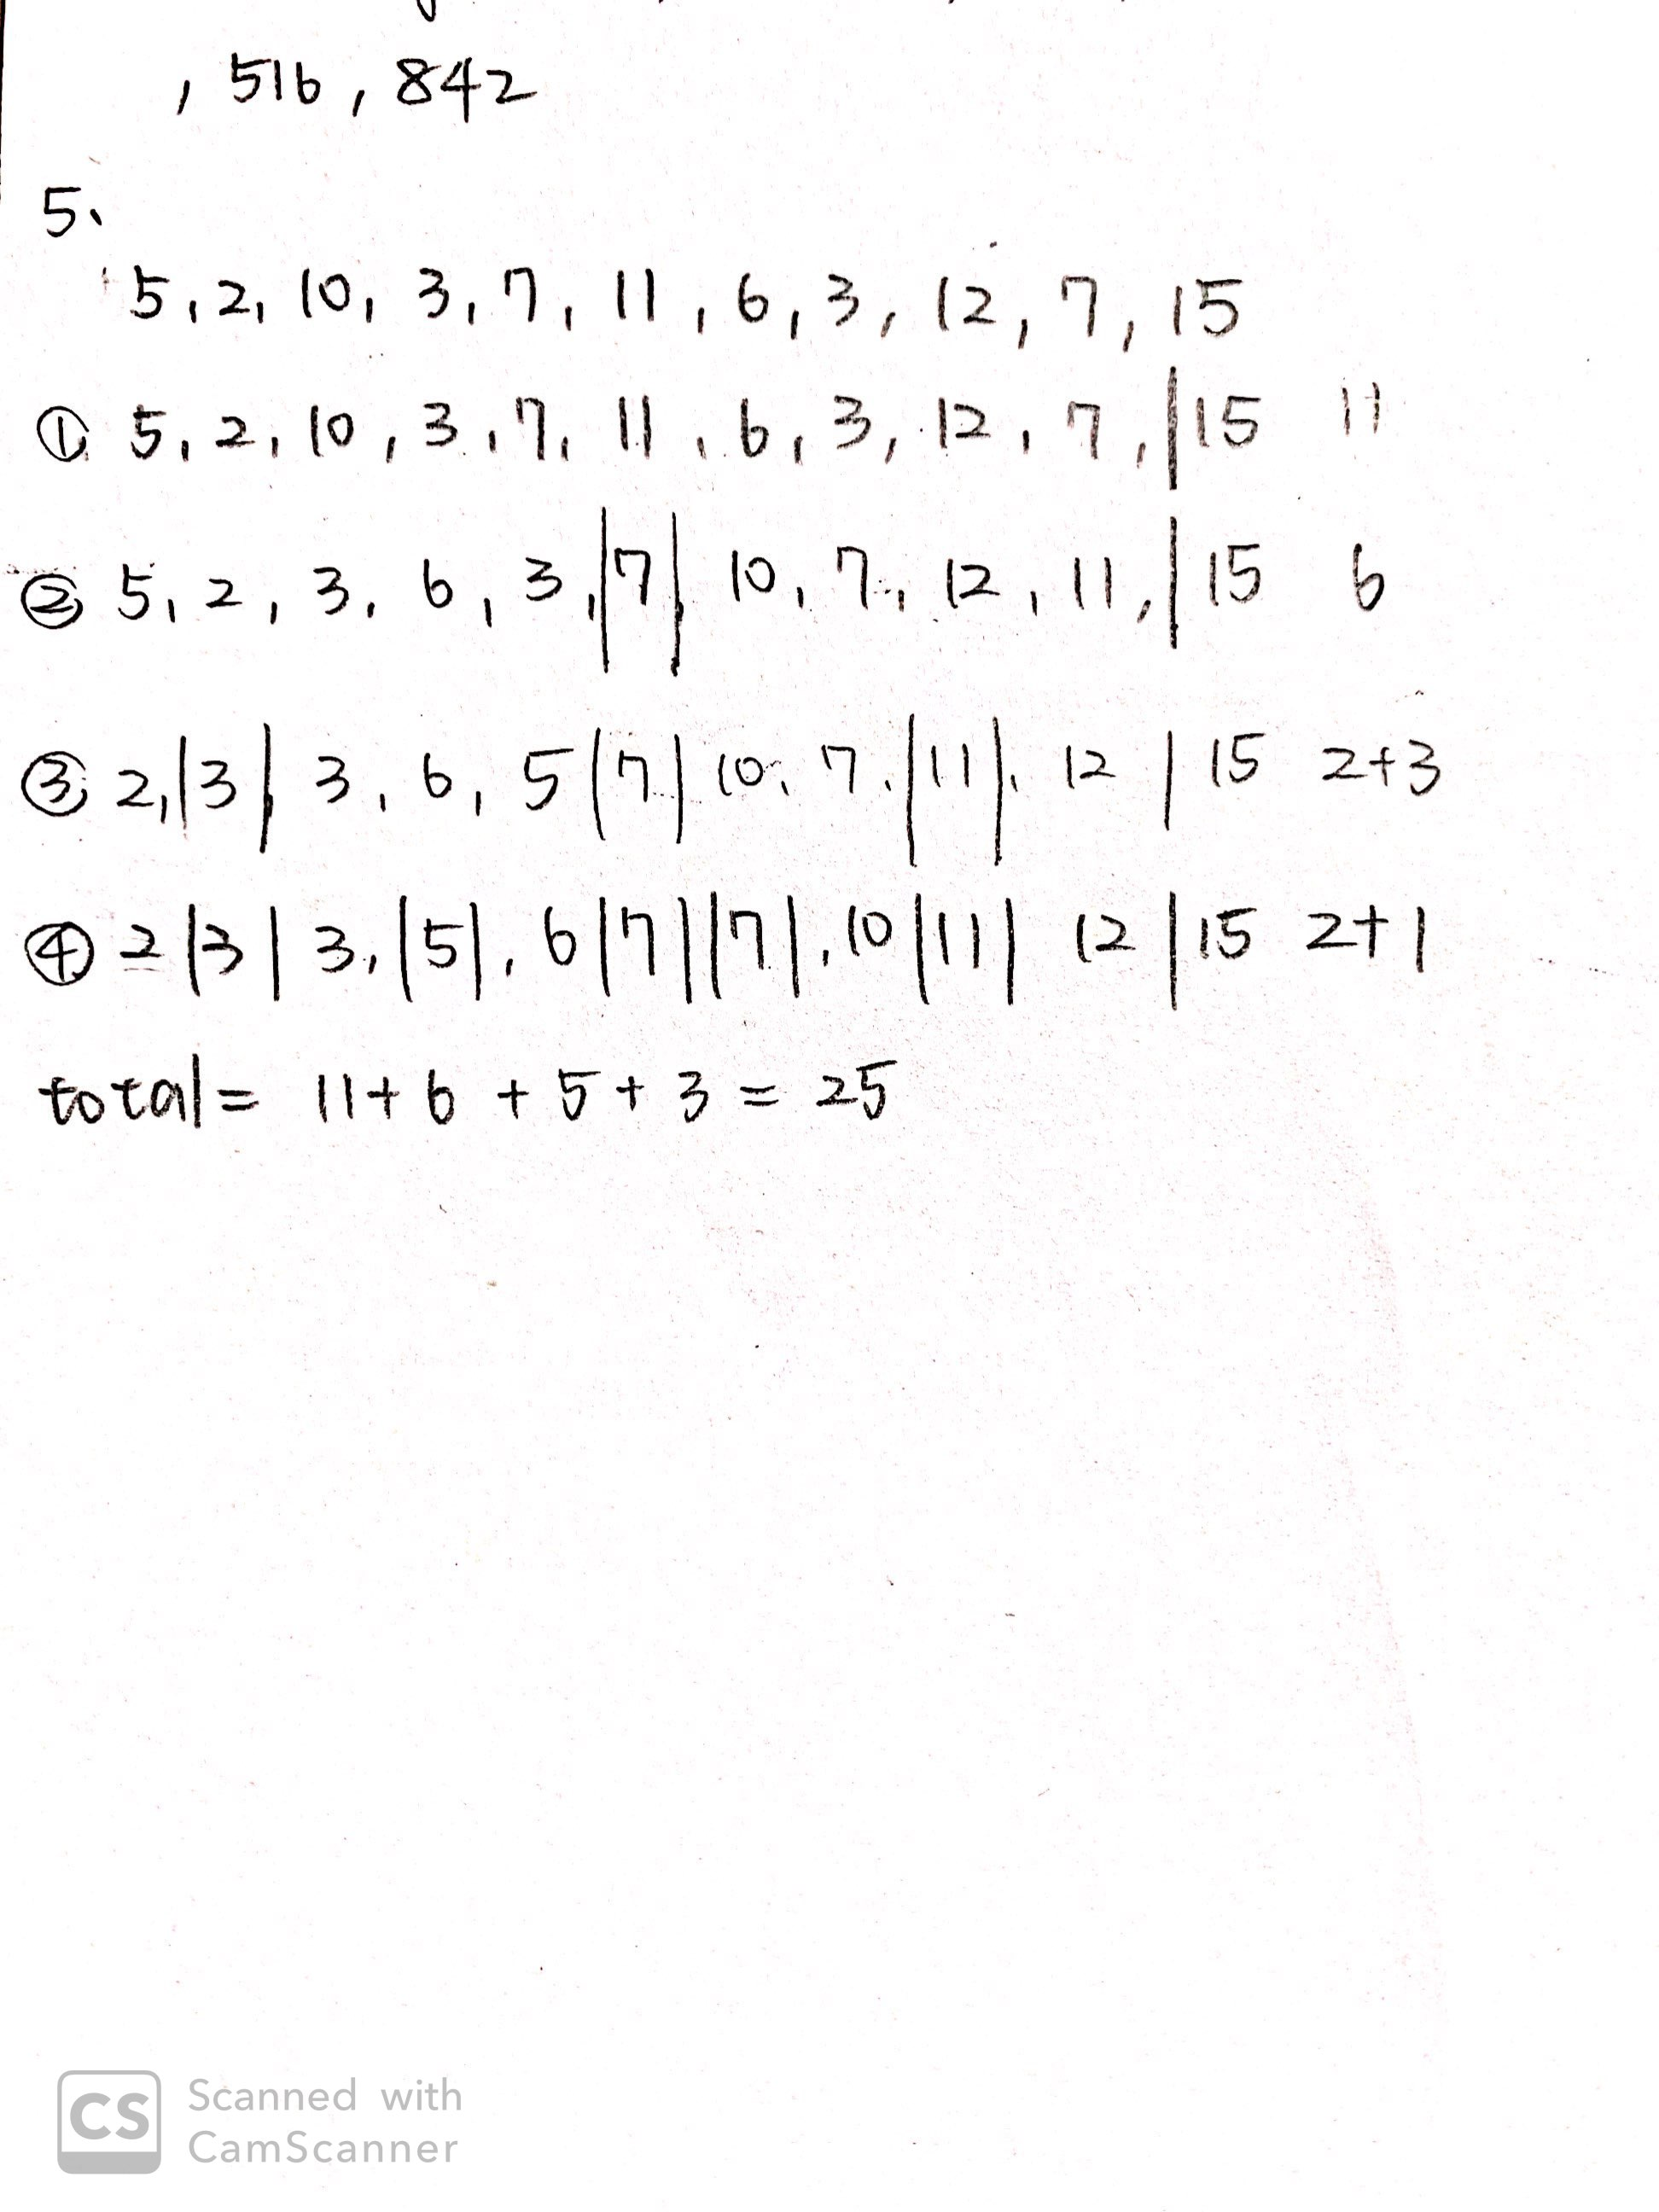 , 516, 842
5.
5, 2, 10, 3, 7, 11, 6, 3, 12, 7, 15
① 5, 2, 10, 3, 7, 11, 6, 3, 12, 7, |15 11
② 5, 2, 3, 6, 3, |7| 10, 7, 12, 11, |15 6
③ 2, |3| 3, 6, 5 |7| 10, 7, |11|, 12 | 15 2+3
④ 2 |3| 3, |5|, 6 |7||7|, 10 |11| 12 | 15 2+1
total = 11+6+5+3 = 25
CS
Scanned with
CamScanner